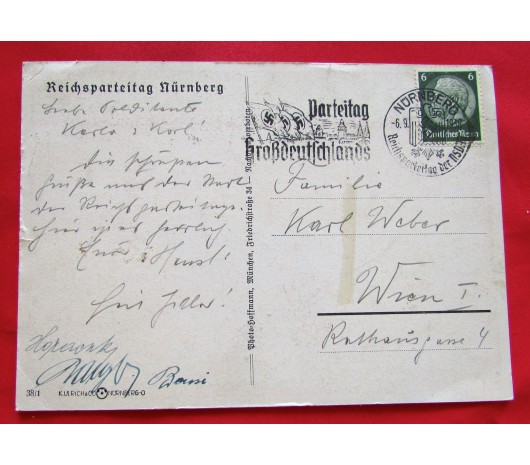 Reichsparteitag Nürnberg
Karla & Karl!
Die schönsten
Grüße von der Stadt
des Reichsparteitages.
Hier ist es herrlich
Heil Hitler!
Berni
38/1
K.ULRICH & CO NÜRNBERG-O
Photo-Hoffmann, München, Friedrichstraße 34 - Nachdruck verboten
Parteitag
Großdeutschlands
NÜRNBERG
-6.9.
Reichsparteitag der NSDAP
6 6
Deutsches Reich
Familie
Karl Weber
Wien I.
Rathausgasse 4